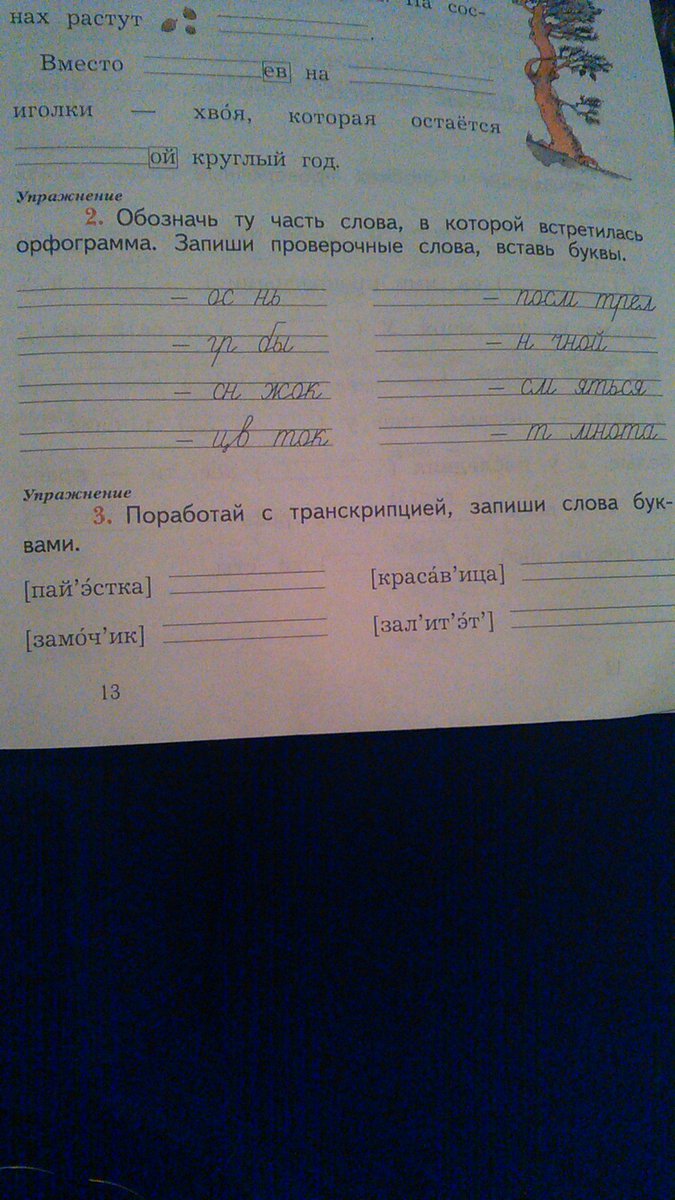 На сос-
нах растут .
Вместо ев на
иголки — хво́я, которая остаётся
ой круглый год.
Упражнение
2. Обозначь ту часть слова, в которой встретилась
орфограмма. Запиши проверочные слова, вставь буквы.
— ос нь — посм трел
— гр бы — н чной
— сн жок — см яться
— цв ток — т мнота
Упражнение
3. Поработай с транскрипцией, запиши слова бук-
вами.
[пай’э́стка] [краса́в’ица]
[замо́ч’ик] [зал’ит’э́т’]
13